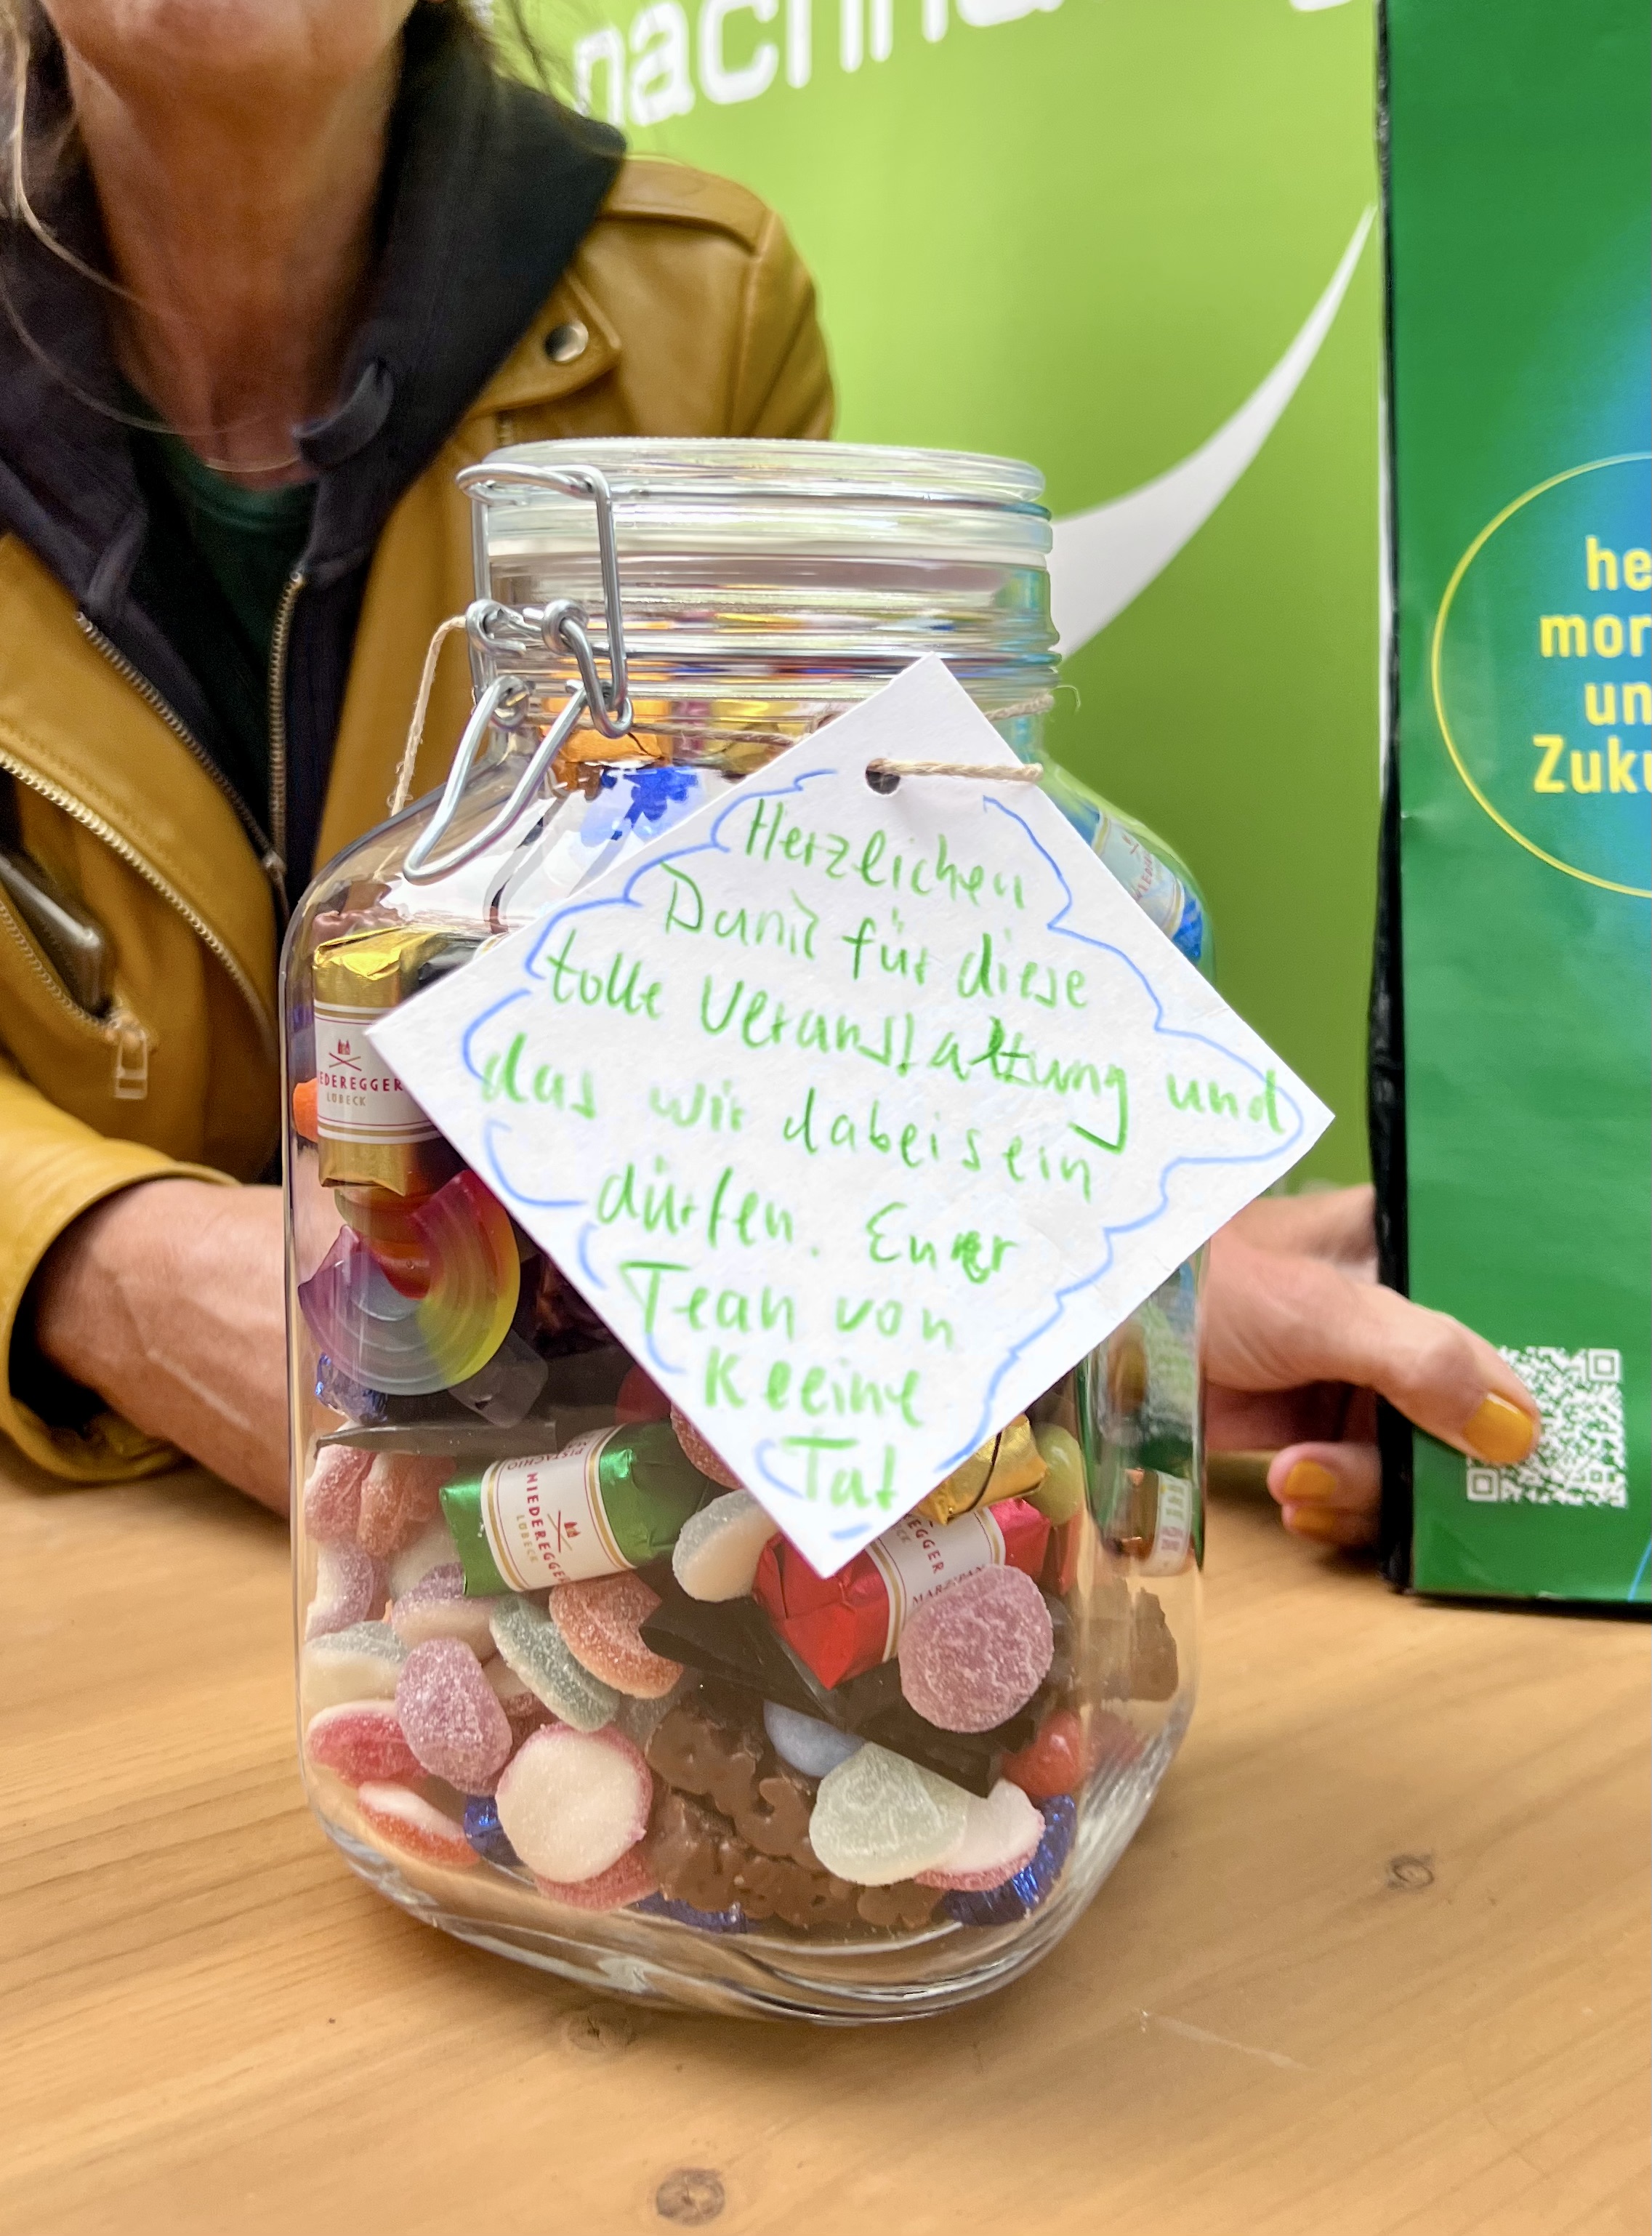 nachha
he
mor
un
Zuku
Herzlichen
Dank für diese
tolle Veranstaltung und
das wir dabeisein
dürfen. Euer
Team von
Keeine
Tat
NIEDEREGGER
LÜBECK
PISTACHIO
NIEDEREGGER
LÜBECK
EGGER
MARZIPAN